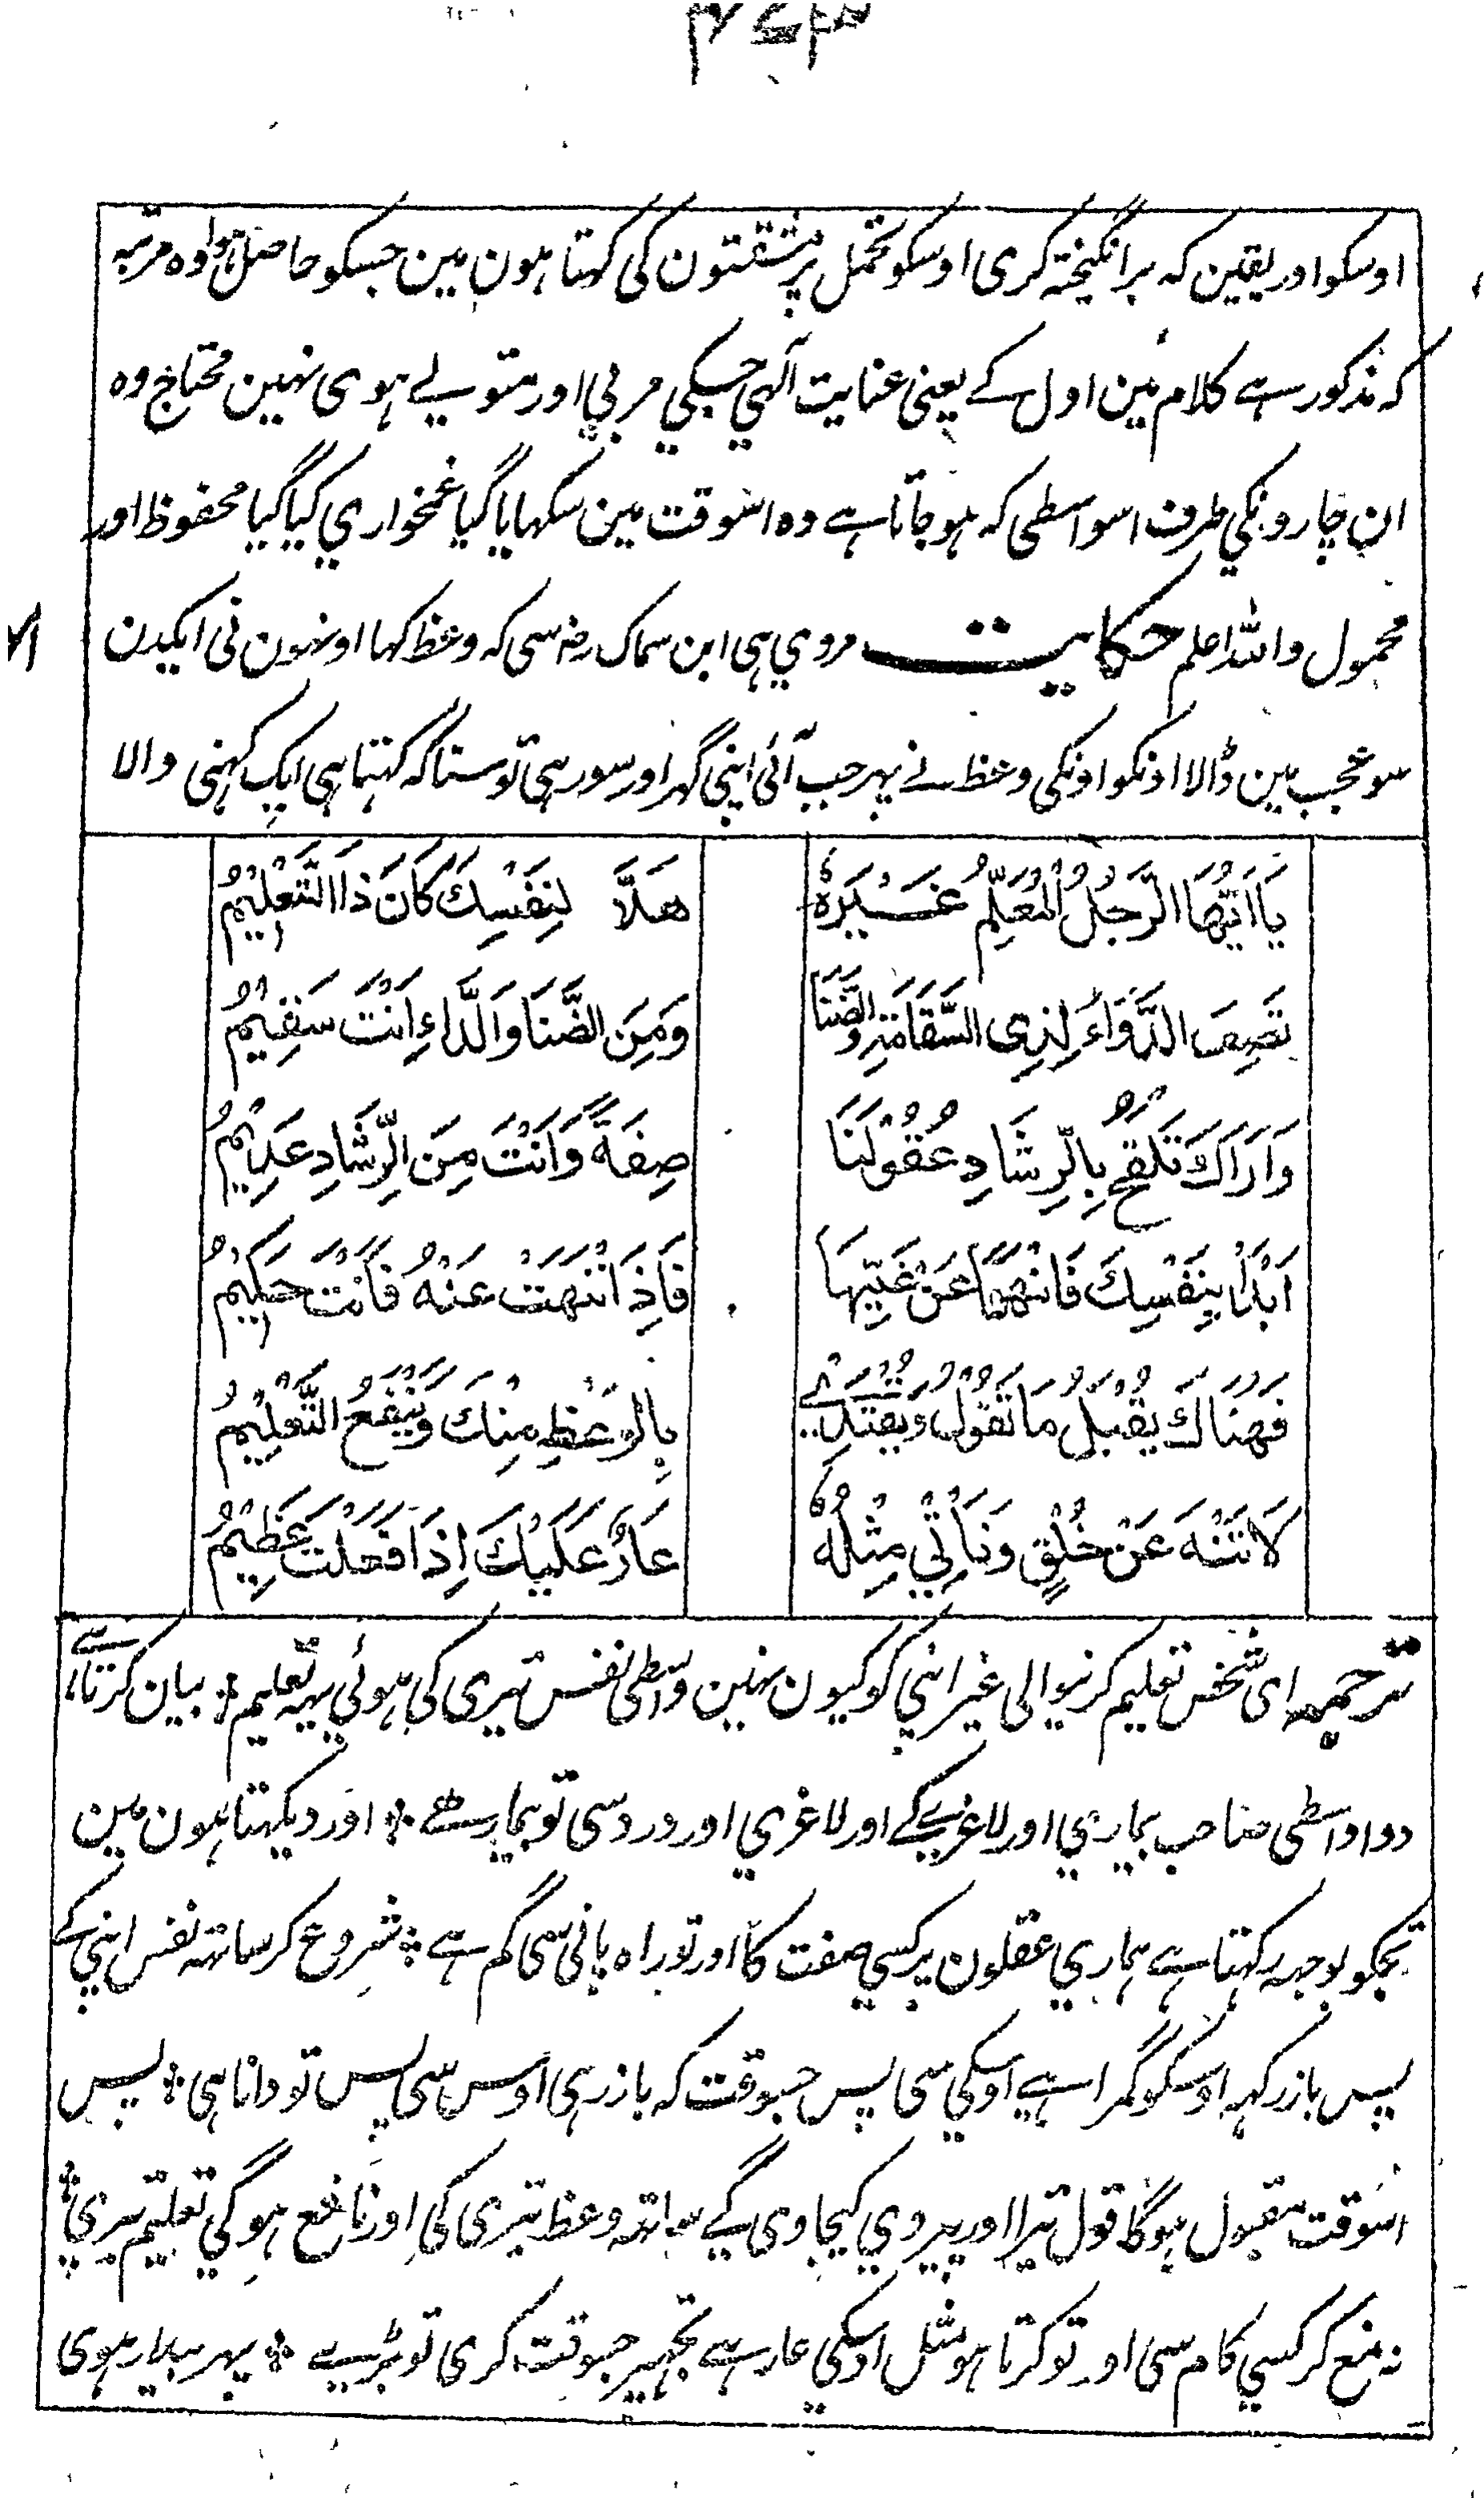 اوسکو اور یقین که برانگیخته کری اوسکو تحمل پر مشقتون کی کهتا هون مین جسکو حاصل هوا وه مرتبه
که مذکور هے کلام مین اول کے یعنی عنایت آلهی جسکی مربی اور متولے هوی نهین محتاج وه
ان چارونکی طرف اسواسطی که هو جاتا هے وه اسوقت مین سکهایا گیا غمخواری کیا گیا محفوظ اور
محمول والله اعلم حکایت مروی هی ابن سماک رض سی که وعظ کها اونهون نی ایکدن
سو عجب مین ڈالا اونکو اونکی وعظ نے پهر جب آئی اپنی گهر اور سو رهی تو سنا که کهتا هی ایک کهنی والا
يَا اَيُّهَا الرَّجُلُ الْمُعَلِّمُ غَيْرَهُ هَلَّا لِنَفْسِكَ كَانَ ذَا التَّعْلِيْمُ
تَصِفُ الدَّوَاءَ لِذِى السَّقَامَةِ وَالضَّنَا وَمِنَ الضَّنَا وَالدَّاءِ اَنْتَ سَقِيْمُ
وَاَرَاكَ تَلْقَحُ بِالرِّشَادِ عُقُوْلَنَا صِفَةً وَاَنْتَ مِنَ الرِّشَادِ عَدِيْمُ
اَبْدَأْ بِنَفْسِكَ فَانْهَهَا عَنْ غَيِّهَا فَاِذَا نْتَهَتْ عَنْهُ فَاَنْتَ حَكِيْمُ
فَهُنَاكَ يُقْبَلُ مَا تَقُوْلُ وَيُقْتَدٰے بِالْوَعْظِ مِنْكَ وَيَنْفَعُ التَّعْلِيْمُ
لَا تَنْهَ عَنْ خُلُقٍ وَتَأْتِيْ مِثْلَهُ عَارٌ عَلَيْكَ اِذَا فَعَلْتَ عَظِيْمُ
ترجمه ای شخص تعلیم کرنیوالی غیر اپنی کو کیون نهین واسطی نفس تیری کی هوئی یهه تعلیم * بیان کرتا هے
دوا واسطی صاحب بیماری اور لاغریکے اور لاغری اور درد سی تو بیمار هے * اور دیکهتا هون مین
تجکو بوجهه رکهتا هے هماری عقلون پر کسی صفت کا اور تو راه یابی سی گم هے * شروع کر ساتهه نفس اپنی کے
پس باز رکهه اوسکو گمراهے اوسکی سی پس جسوقت که باز رهی اوس سی پس تو دانا هی * پس
اسوقت مقبول هوگا قول تیرا اور پیروی کیجاوی گے ساتهه وعظ تیری کی اور نافع هوگی تعلیم تیری *
نه منع کر کسی کام سی اور تو کرتا هو مثل اوسکی عار هے تجهپر جسوقت کری تو بڑے * پهر بیدار هوی